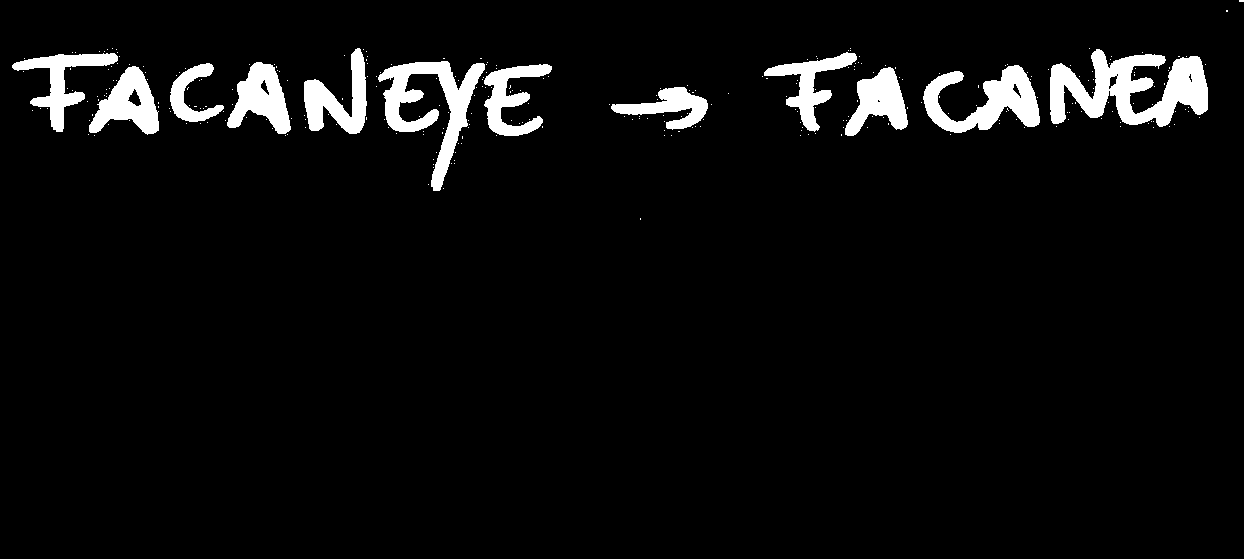 FACANEYE → FACANEA